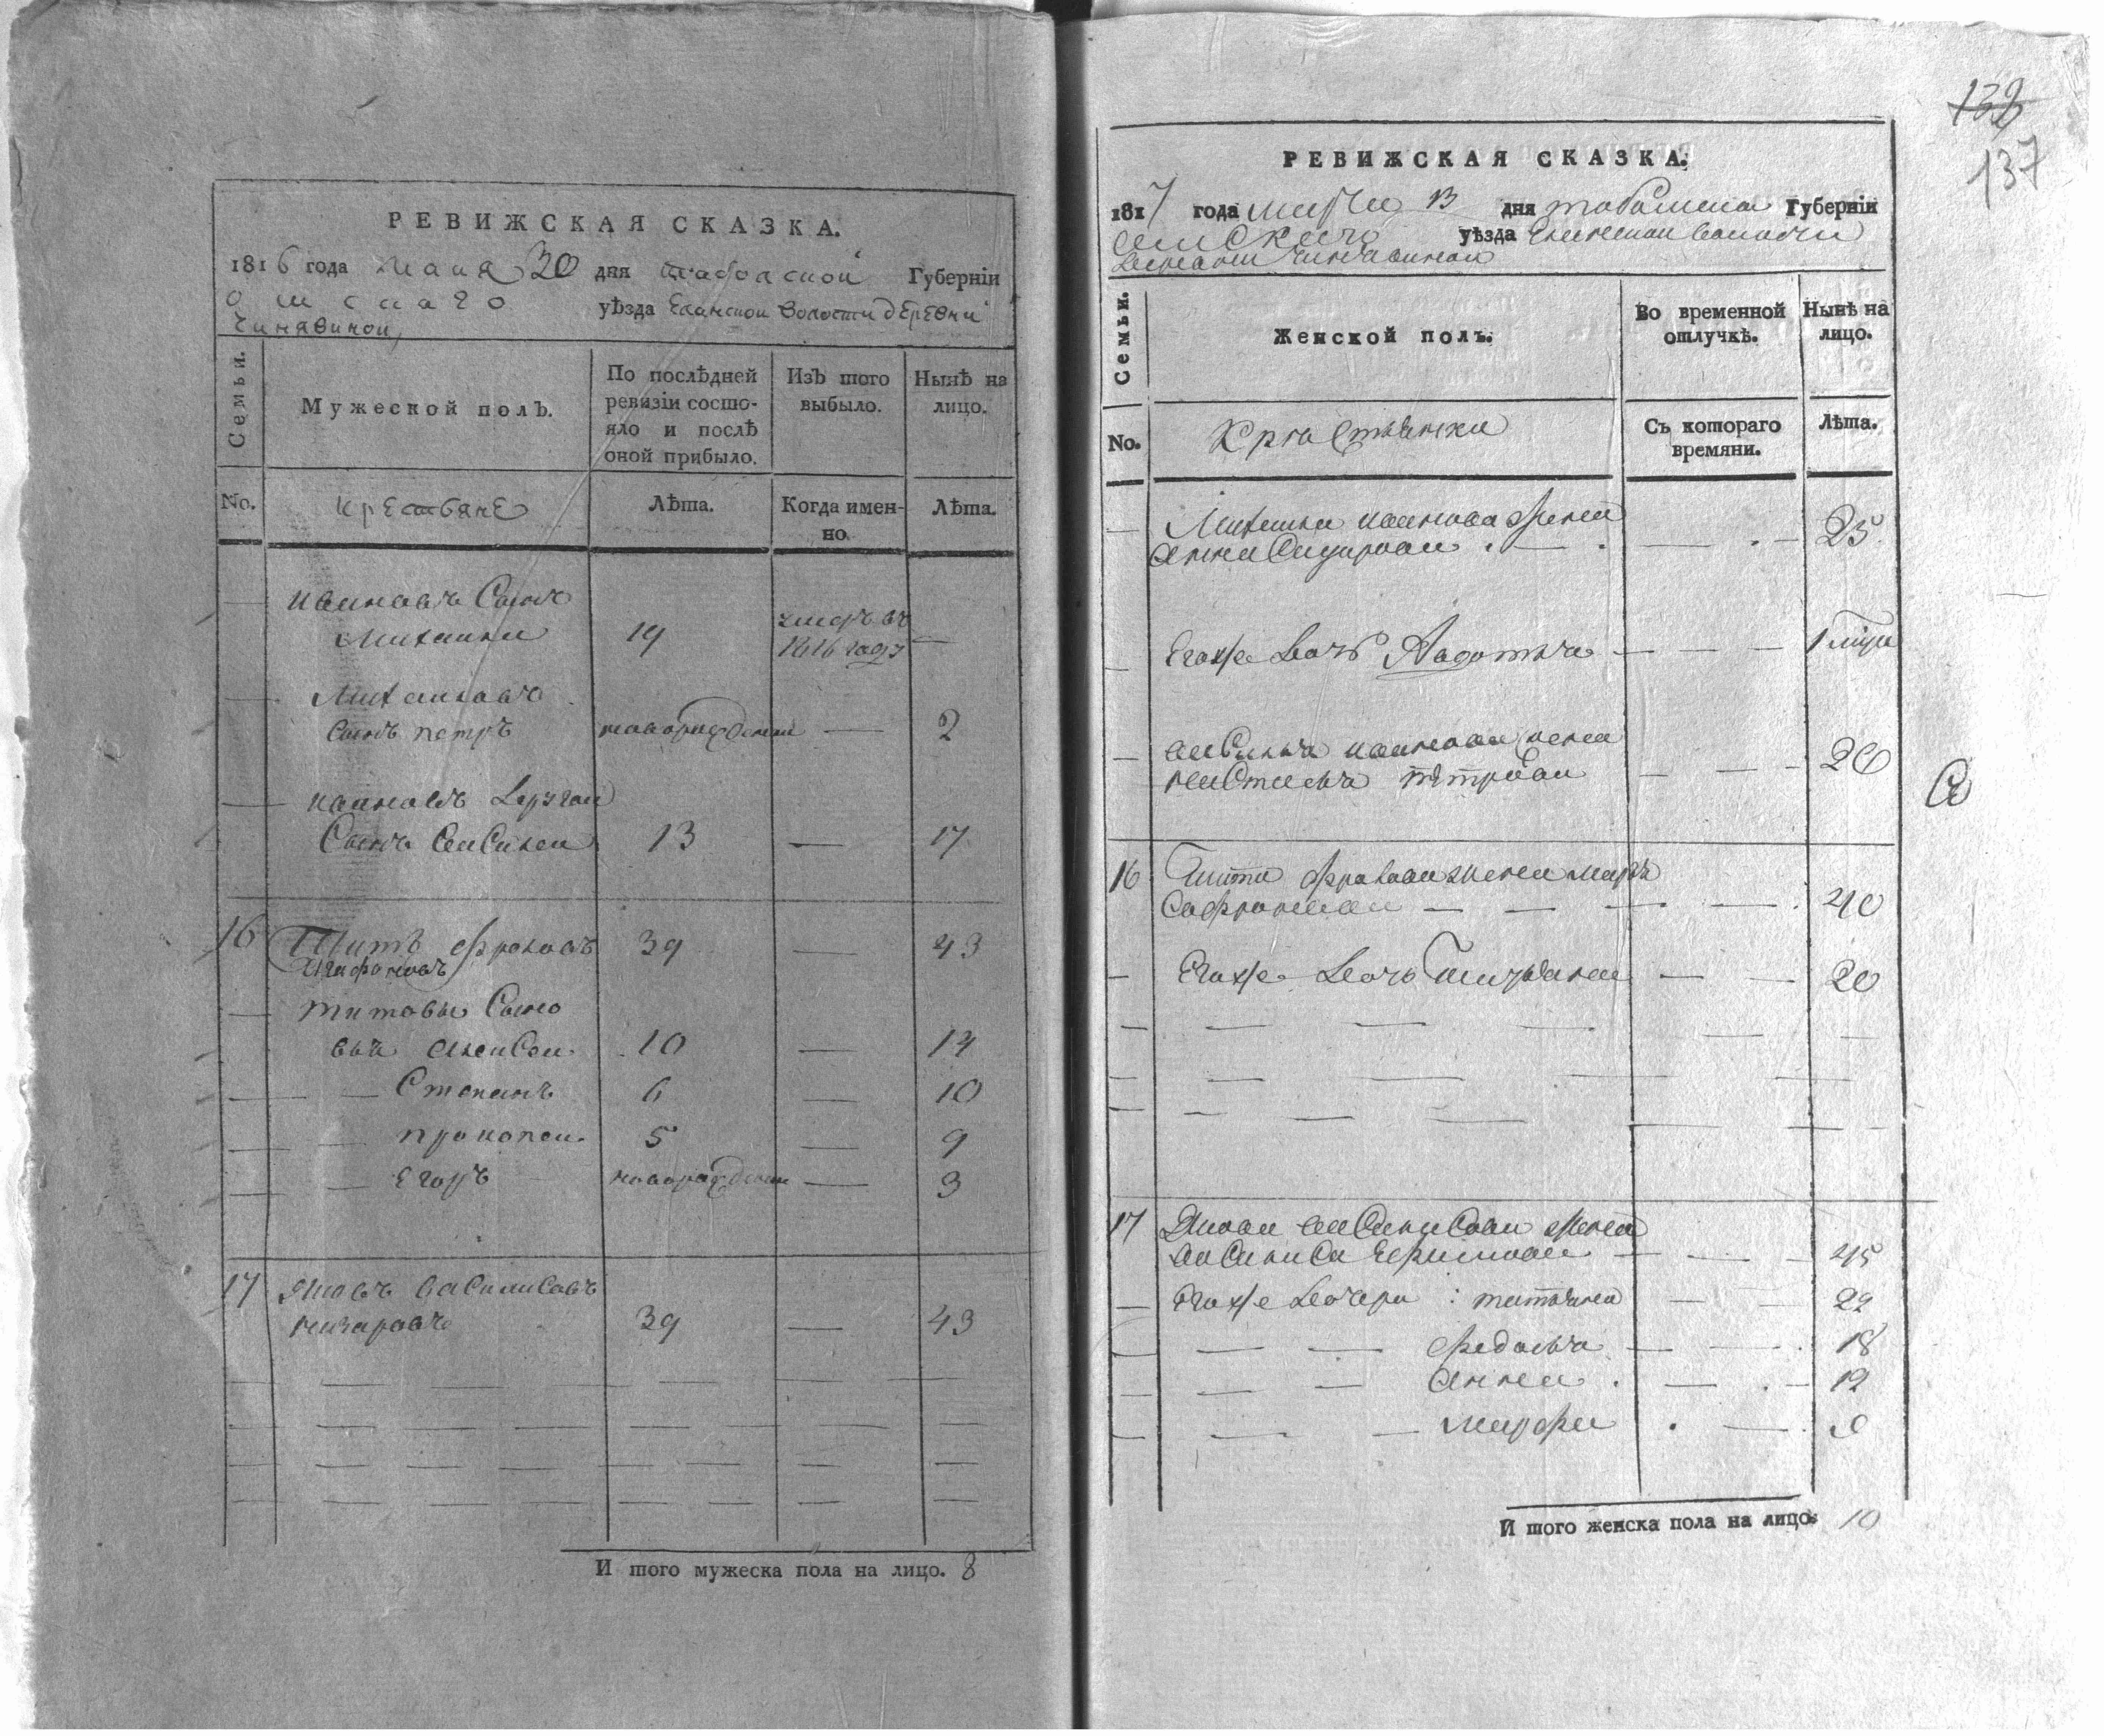 РЕВИЖСКАЯ СКАЗКА.
1816 года Маия 30 дня тобольской Губернiи
Омскаго уѣзда Еланской волости дЕрЕвни
Чинявиной
Семьи.
Мужеской полъ.
По послѣдней ревизiи состо-
яло и послѣ
оной прибыло.
Изъ того
выбыло.
Нынѣ на
лицо.
No.
крЕстьянЕ
Лѣта.
Когда имен-
но.
Лѣта.
ивановъ Сынъ
Михаила 19 умеръ въ
1816 году —
Михаиловъ
сынъ петръ новорожденной — 2
ивановъ другой
Сынъ Василеи 13 — 17
16 Титъ фроловъ 39 — 43
титовы Сыно
вья алексеи 10 — 14
Степанъ 6 — 10
прокопеи 5 — 9
Егоръ новорожденои — 3
17 Яковъ
39 — 43
И того мужеска пола на лицо. 8
132
137
РЕВИЖСКАЯ СКАЗКА.
1817 года марта 13 дня тобольской Губернiи
Омскаго уѣзда Еланской волости
деревни Чинявиной
Семьи.
Женской полъ.
Во временной
отлучкѣ.
Нынѣ на
лицо.
No.
Крестьянски
Съ котораго
времяни.
Лѣта.
Михаила иванова жена
анна Сидорова 25
Егоже дочь Авдотья 1
василья иванова жена
настасья петрова 20
16 Тита фролова жена марья
Сафронова 40
Егоже дочь Татьяна 20
17 Якова жена
Ефимова 45
Егоже дочери: татьяна 22
федосья 18
анна 12
марфа 9
И того женска пола на лицо: 10